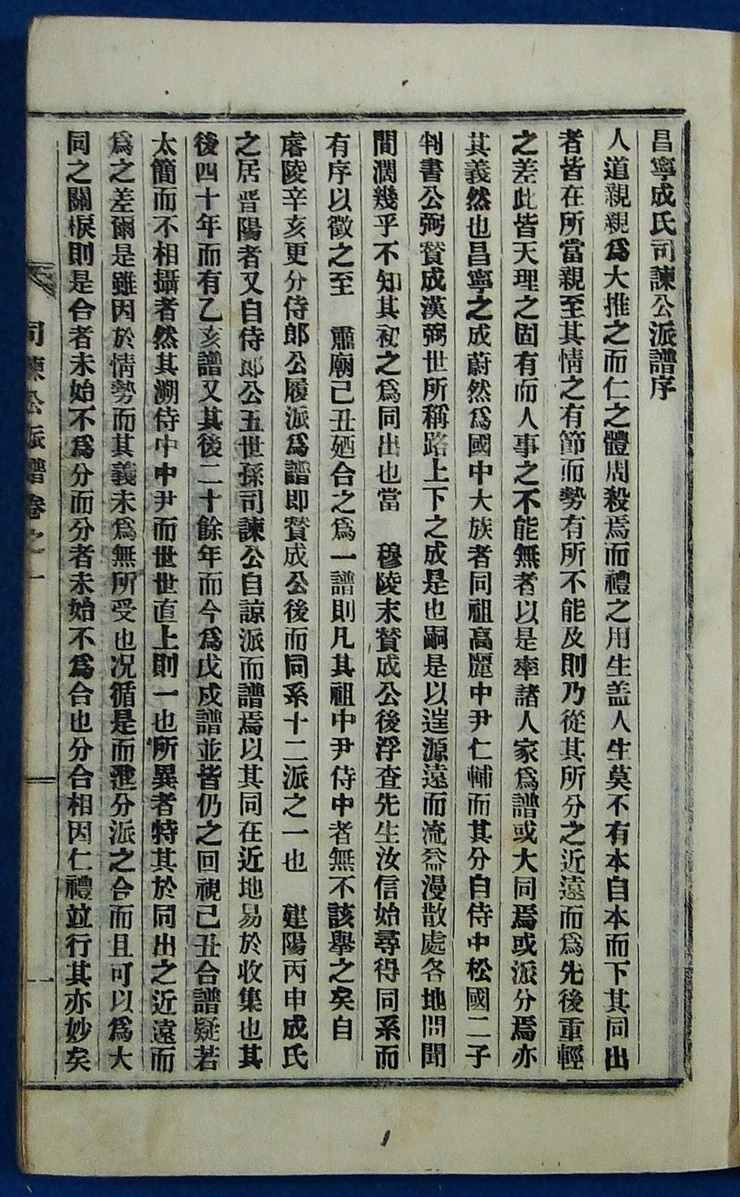 昌寧成氏司諫公派譜序
人道親親爲大推之而仁之體周殺焉而禮之用生盖人生莫不有本自本而下其同出
者皆在所當親至其情之有節而勢有所不能及則乃從其所分之近遠而爲先後重輕
之差此皆天理之固有而人事之不能無者以是率諸人家爲譜或大同焉或派分焉亦
其義然也昌寧之成蔚然爲國中大族者同祖高麗中尹仁輔而其分自侍中松國二子
判書公弼贊成漢弼世所稱路上下之成是也嗣是以逞源遠而流益漫散處各地間
間濶幾乎不知其初之爲同出也當 穆陵末贊成公後浮査先生汝信始尋得同系而
有序以徵之至 肅廟己丑廼合之爲一譜則凡其祖中尹侍中者無不該擧之矣自
睿陵辛亥更分侍郎公履派爲譜即贊成公後而同系十二派之一也 建陽丙申成氏
之居晋陽者又自侍郎公五世孫司諫公自諒派而譜焉以其同在近地易於收集也其
後四十年而有乙亥譜又其後二十餘年而今爲戊戌譜並皆仍之回視己丑合譜疑若
太簡而不相攝者然其溯侍中中尹而世世直上則一也所異者特其於同出之近遠而
爲之差爾是雖因於情勢而其義未爲無所受也况循是而溯分派之合而且可以爲大
同之關棙則是合者未始不爲分而分者未始不爲合也分合相因仁禮並行其亦妙矣
司諫公派譜卷之一
一
1